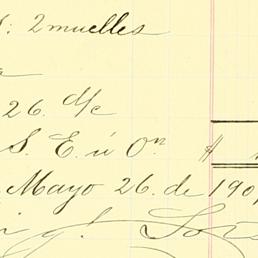 : 2 muelles
a
26. d/c
S. E. ú On $
Mayo 26. de 190